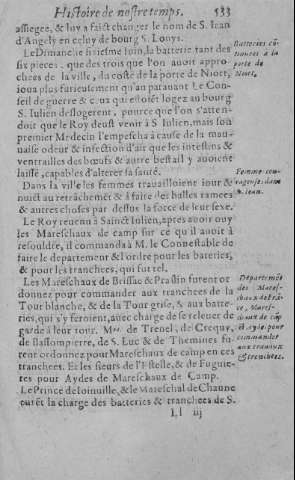 Histoire de nostre temps. 533
assiegee, & luy a faict changer le nom de S. Iean
d'Angely en celuy de bourg S. Louys.
Le Dimanche sixiesme Iuin, la batterie tant des
six pieces, que des trois que l'on auoit appro-
chees de la ville, du costé de la porte de Niort,
ioua plus furieusement qu'au parauant. Le Con-
seil de guerre & ceux qui estoiēt logez au bourg
S. Iulien deslogerent, pource que l'on s'atten-
doit que le Roy deust venir à S. Iulien, mais son
premier Medecin l'empescha à cause de la mau-
uaise odeur & infection d'air que les intestins &
ventrailles des bœufs & autre bestail y auoiēt
laissé, capables d'alterer sa santé.
Dans la ville les femmes trauailloient iour &
nuict au retrāchemēt & à faire des balles ramees
& autres choses par dessus la force de leur sexe.
Le Roy reuenu à Sainct Iulien, apres auoir ouy
les Mareschaux de camp sur ce qu'il auoit à
resouldre, il commanda à M. le Connestable de
faire le departement & l'ordre pour les bateries,
& pour les tranchees, qui fut tel.
Les Mareschaux de Brissac & Praslin furent or
donnez pour commander aux tranchees de la
Tour blanche, & de la Tour grise, & aux batte-
ries, qui s'y feroient, auec charge de se releuer de
garde à leur tour. Mrs. de Trenel, de Crequy,
de Bassompierre, de S. Luc & de Themines fu
rent ordonnez pour Mareschaux de camp en ces
tranchees. Et les sieurs de l'Estelle, & de Fuguie-
res pour Aydes de Mareschaux de Camp.
Le Prince de Ioinuille, & le Mareschal de Chaune
eurēt la charge des batteries & tranchees de S.
Ll iij
Batteries cō-
tinuees à la
porte de
Niort.
Femme cou-
rageuse: dans
S. Iean.
Departemēs
des Mares-
chaux de Frā-
ce, Mares-
chaux de cāp
& Ayde pour
commander
aux trauaux
& trenchees.